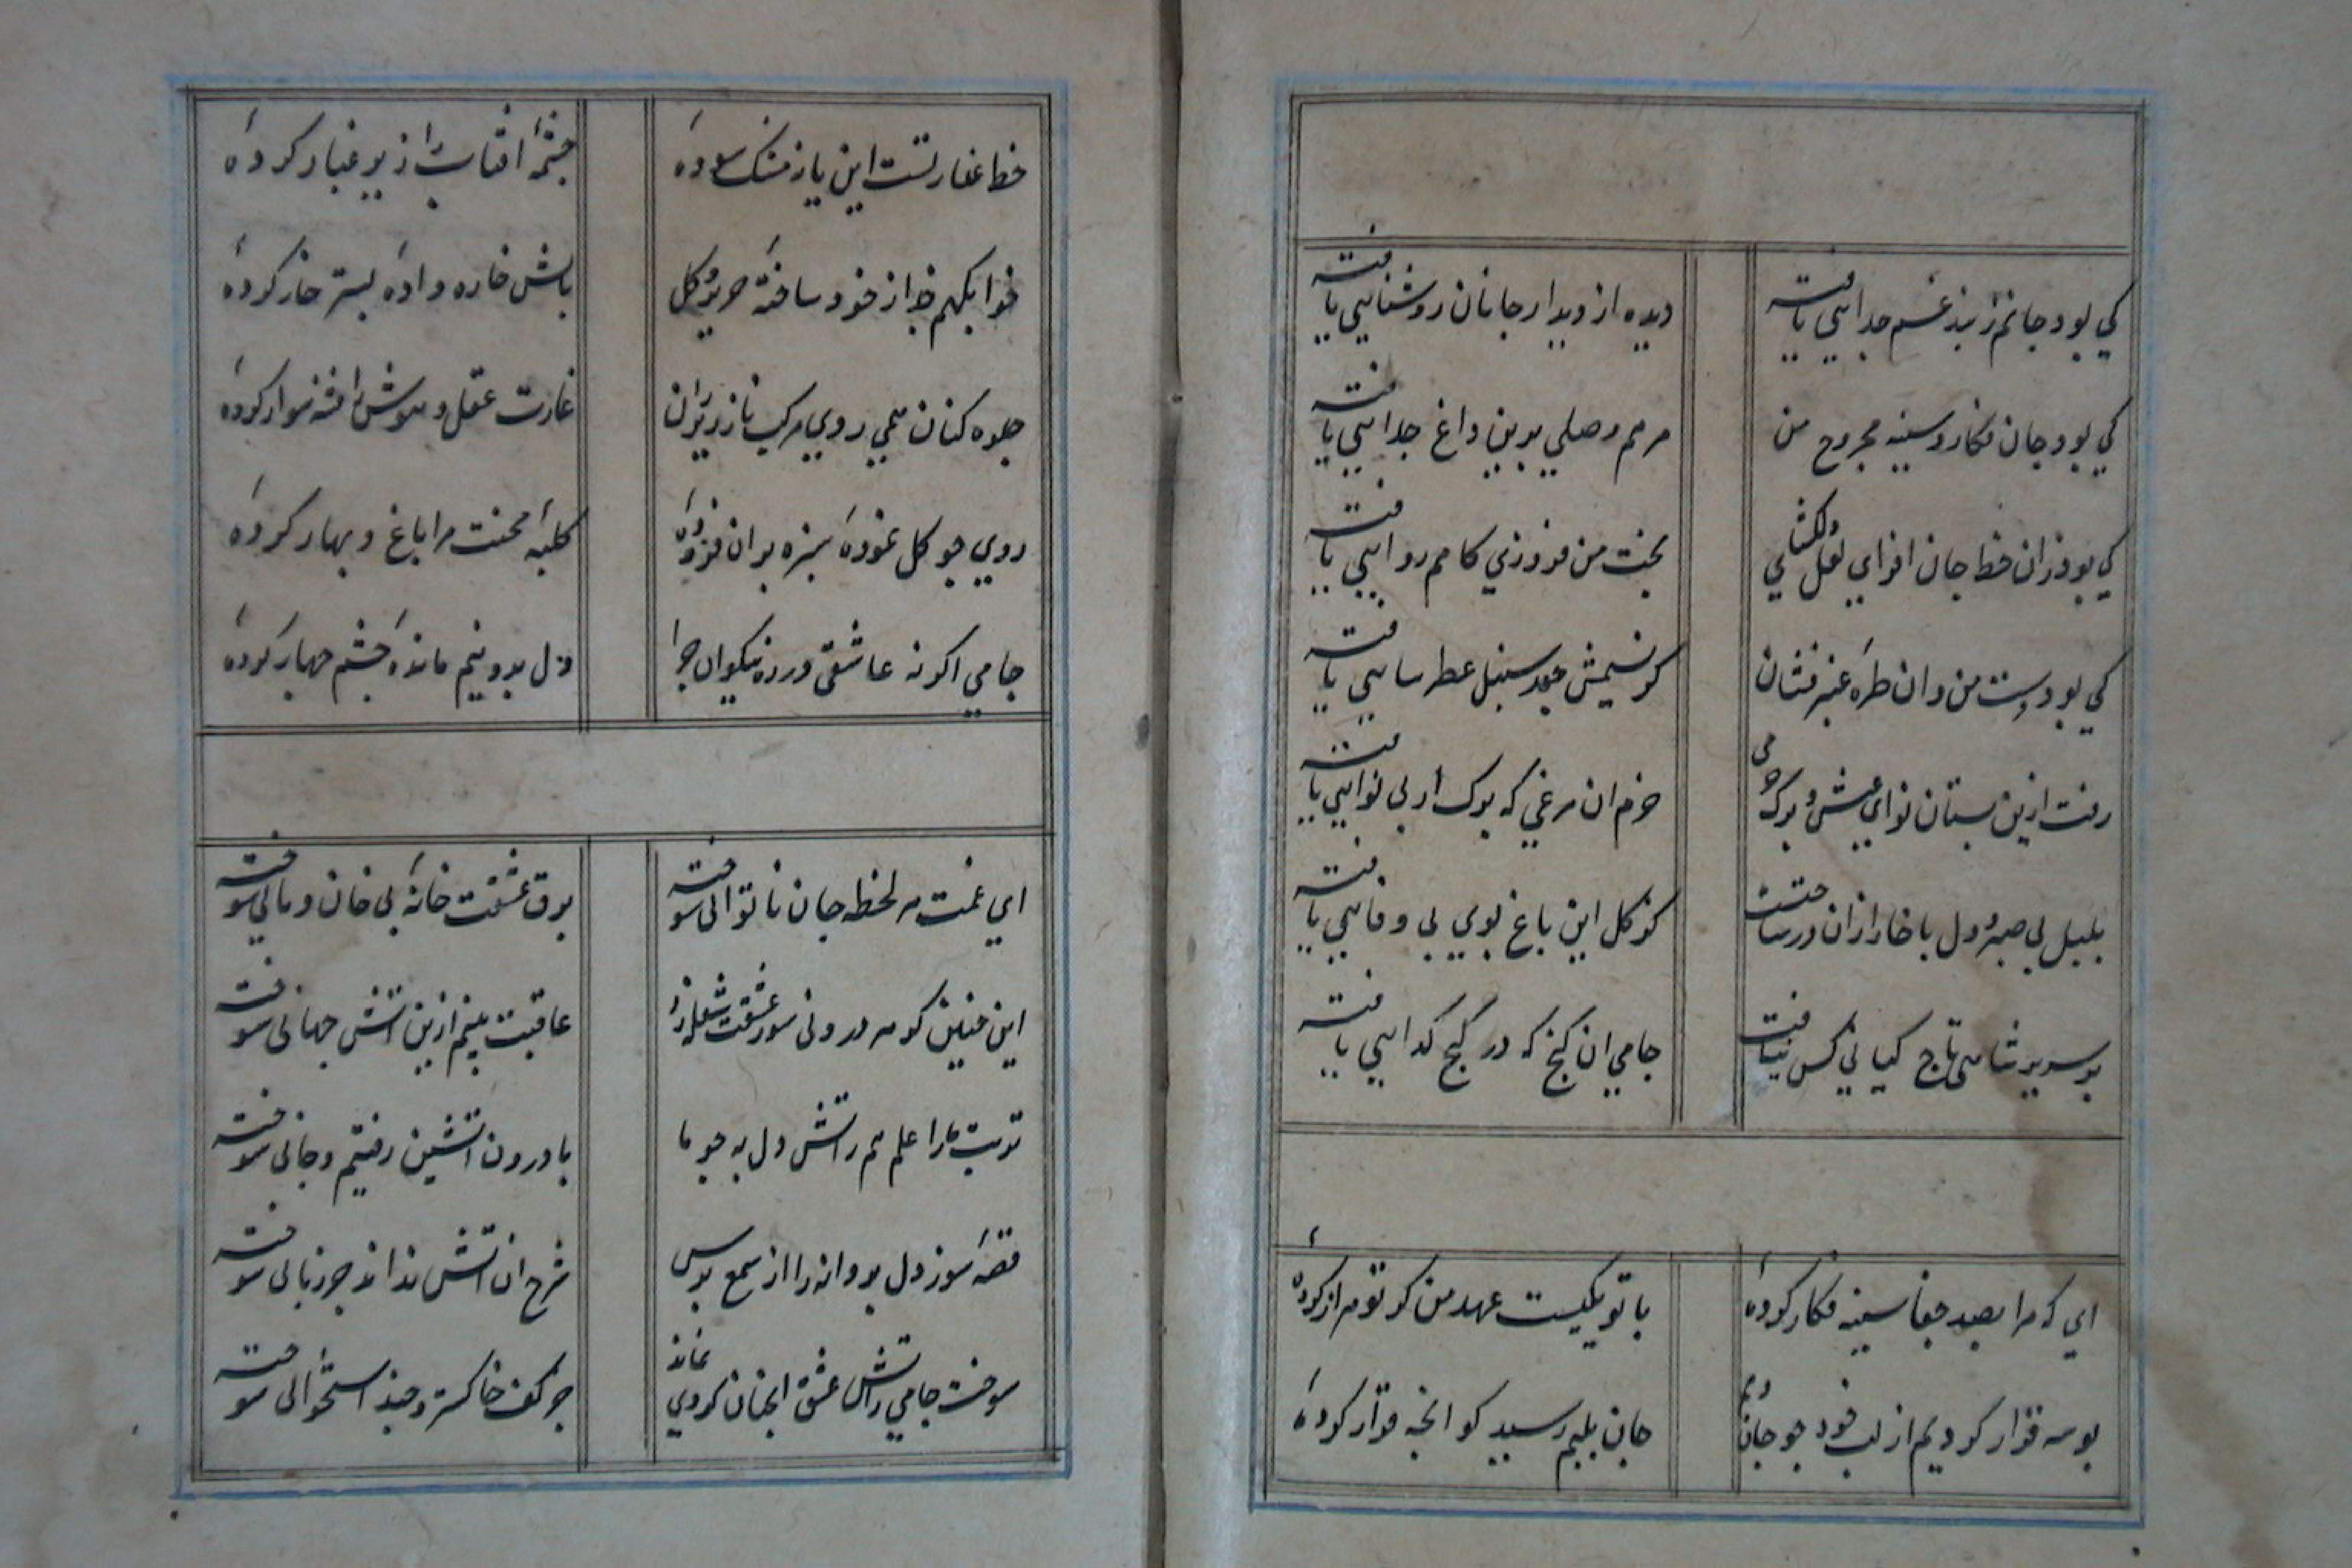 کي بود جانم ز بند غم جدايي يافته ديده از ديدار جانان روشنايي يافته
کي بود جان فکار و سينه مجروح من مرهم وصلي برين داغ جدايي يافته
کي بود زان خط جان افزاي لعل دلکشاي بخت من فيروزي کامم روايي يافته
کي بود دست من و ان طره عنبر فشان کو نسيمش جعد سنبل عطرسايي يافته
رفت ازين بستان نواي عيش و برک خرمي خرم ان مرغي که برک از بي نوايي يافته
بلبل بي صبر و دل با خار ازان در ساختست کز کل اين باغ بوي بي وفايي يافته
بر سرير شاهي و تاج کياني کس نيافت جامي ان کنج که در کنج کدايي يافته
اي که مرا بصد جفا سينه فکار کردهٔ با تو يکيست عهد من کر تو هزار کردهٔ
بوسه قرار کرديم از لب خود جو جان دهم جان بلبم رسيد کو انجه قرار کردهٔ
خط عذار تست اين يا ز مشک سودهٔ جشمهٔ افتاب را زير غبار کردهٔ
خوابکهم جدا ز خود ساختهٔ حرير کل بالش خاره دادهٔ بستر خار کردهٔ
جلوه کنان همي روي مرکب ناز زير ران غارت عقل و هوش را فتنه سوار کردهٔ
روي جو کل نمودهٔ سبزه بران فزودهٔ کلبهٔ محنت مرا باغ و بهار کردهٔ
جامي اکر نه عاشقي در رخ نيکوان جرا دل بدو نيم ماندهٔ جشم جهار کردهٔ
اي غمت هر لحظه جان ناتوانی سوخته برق عشقت خانهٔ بي خان و مانی سوخته
اين جنين کز هر درونی سوز عشقت شعله زد عاقبت بينم ازين اتش جهانی سوخته
تربت ما را علم هم ز اتش دل به جو ما با درون اتشين رفتيم و جانی سوخته
قصهٔ سوز دل پروانه را از شمع پرس شرح ان اتش نداند جز زبانی سوخته
سوخت جامي ز اتش عشق انجنان کز وي نماند جز کف خاکستر و جند استخوانی سوخته